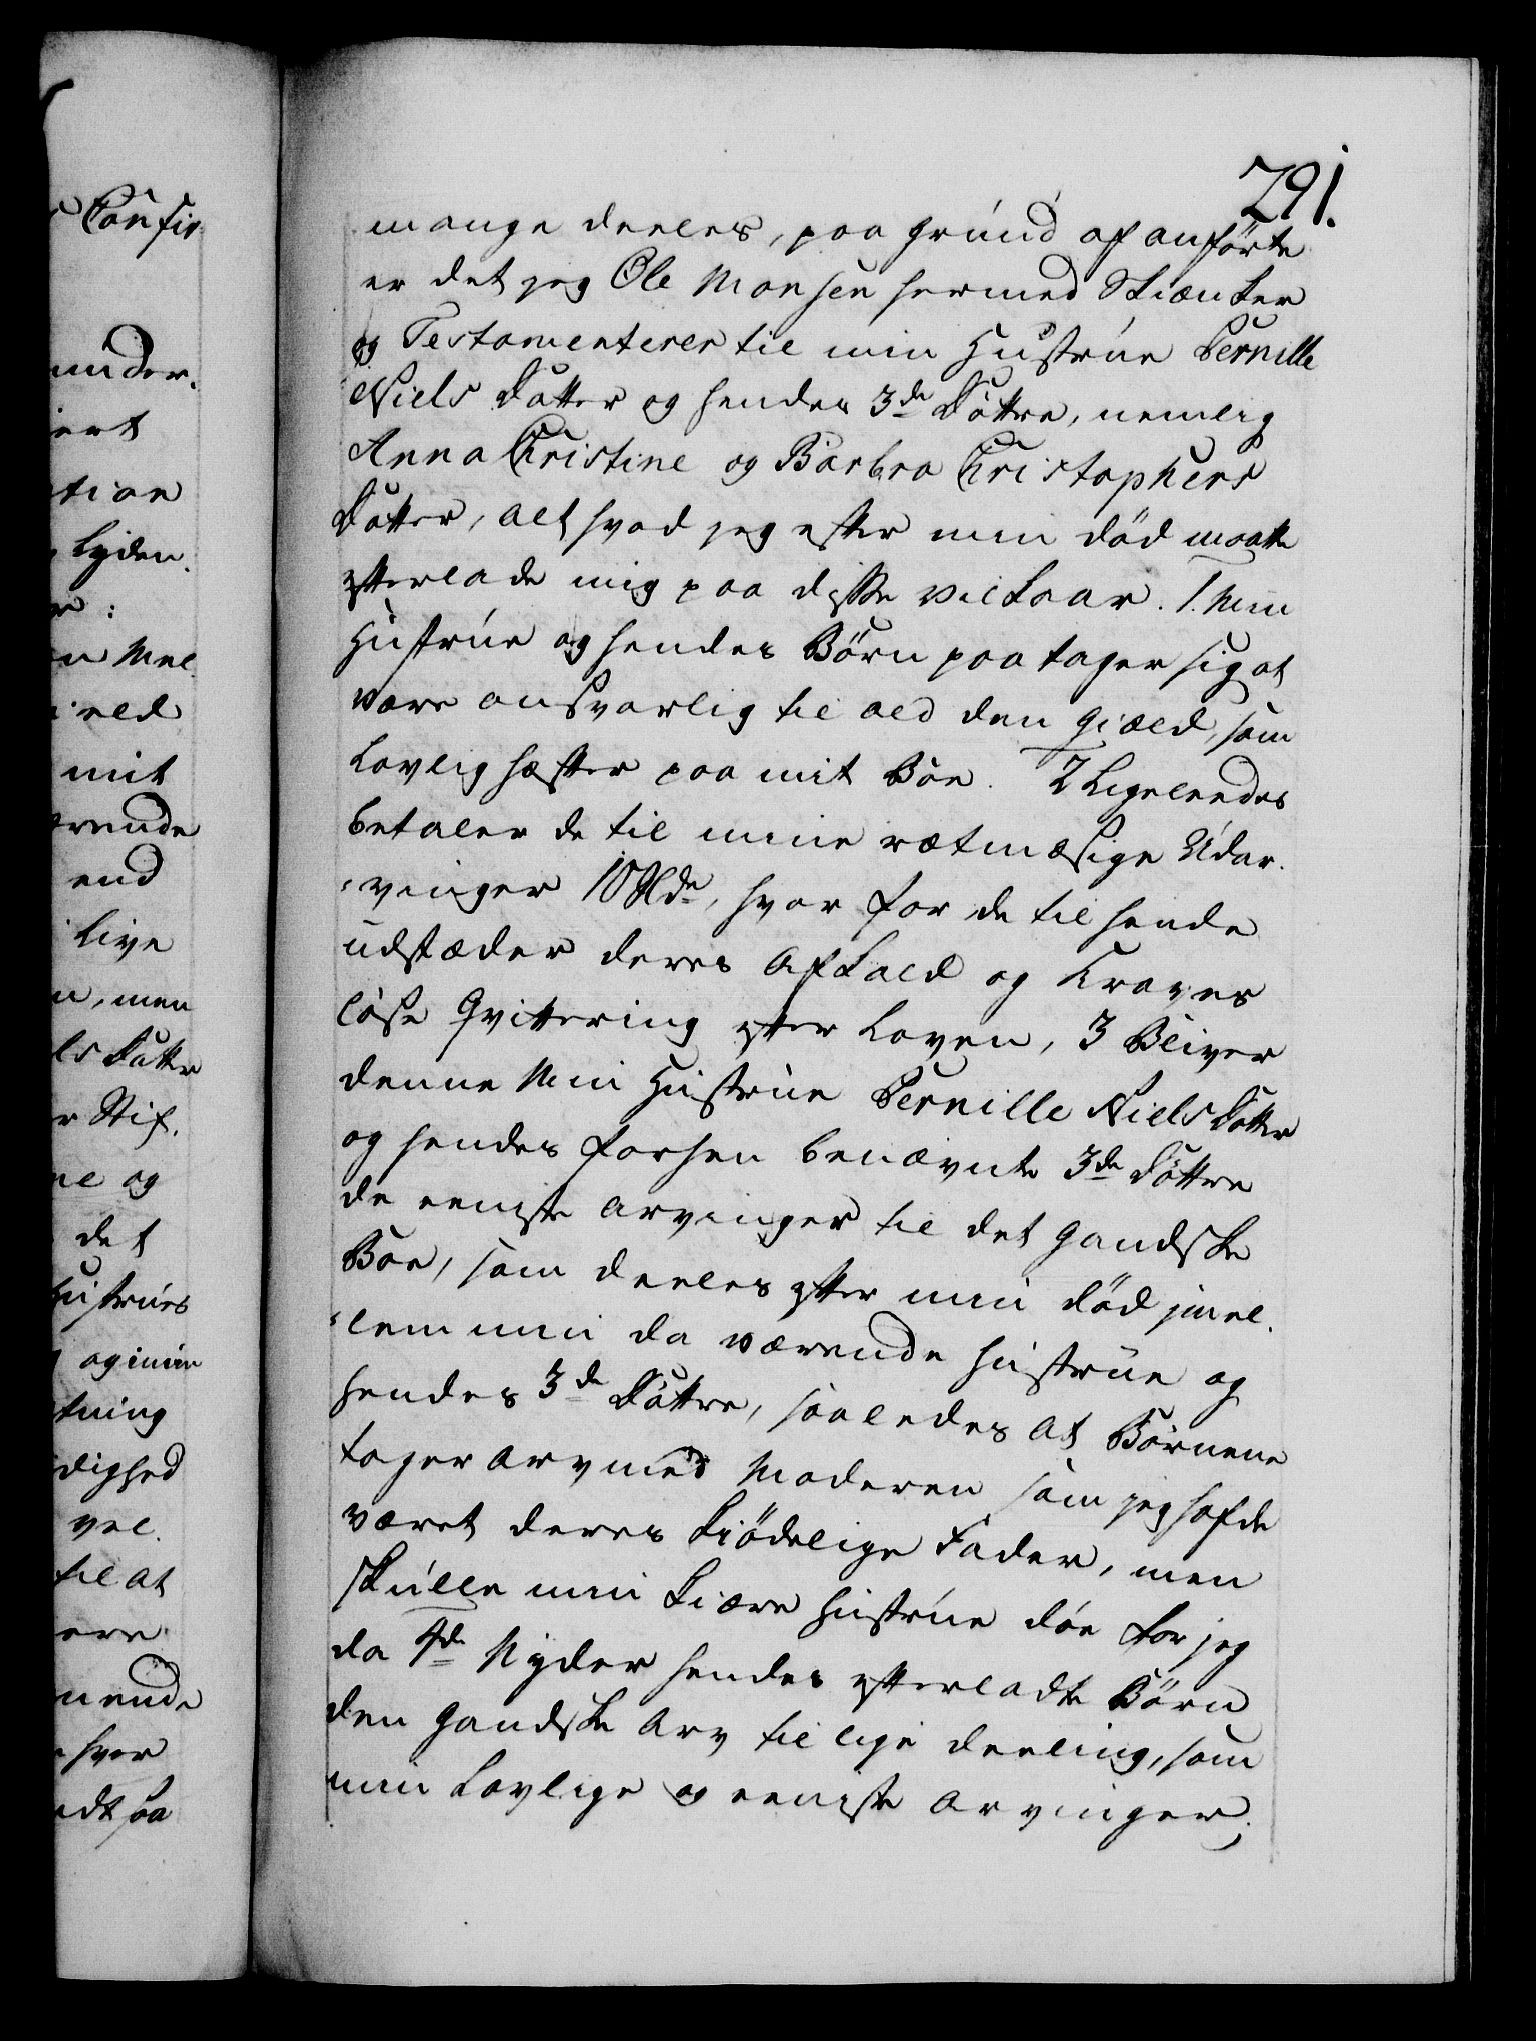 291.
mange deeles, paa Grund af anförte
er det jeg Ole Monsen hermed Skiænker
og Testamenterer til min Hustrüe Pernille
Niels Datter og hendes 3de Döttre, nemlig
Anna Christine og Barbra Christophers
Datter, alt hvad jeg efter min död maatte
efterlade mig paa disse vilkaar. 1. Min
Hustrüe og hendes Börn paatager sig at
være ansvarlig til ald den Giæld, som
Lovlig hæfter paa mit Boe. 2 Ligeleedes
betaler de til mine rætmæsige Udar-
vinger 10 Rde, hvor for de til hende
udstæder deres Afkald og Kraves
löse Qvittering efter Loven, 3 Bliver
denne Min Hustrüe Pernille Niels Datter
og hendes forhen benævnte 3de Döttre
de eeniste Arvinger til det Gandske
Boe, som deeles efter min död imel-
lem min da værende Hustrüe og
hendes 3de Döttre, saaledes at Börnene
tager Arv med Moderen som jeg hafde
været deres Kiödelige Fader, men
skulle min Kiære Hustrüe döe för jeg
da 4de Nyder hendes efterladte Börn
den Gandske Arv til lige deeling, som
min Lovlige og eeniste Arvinger,